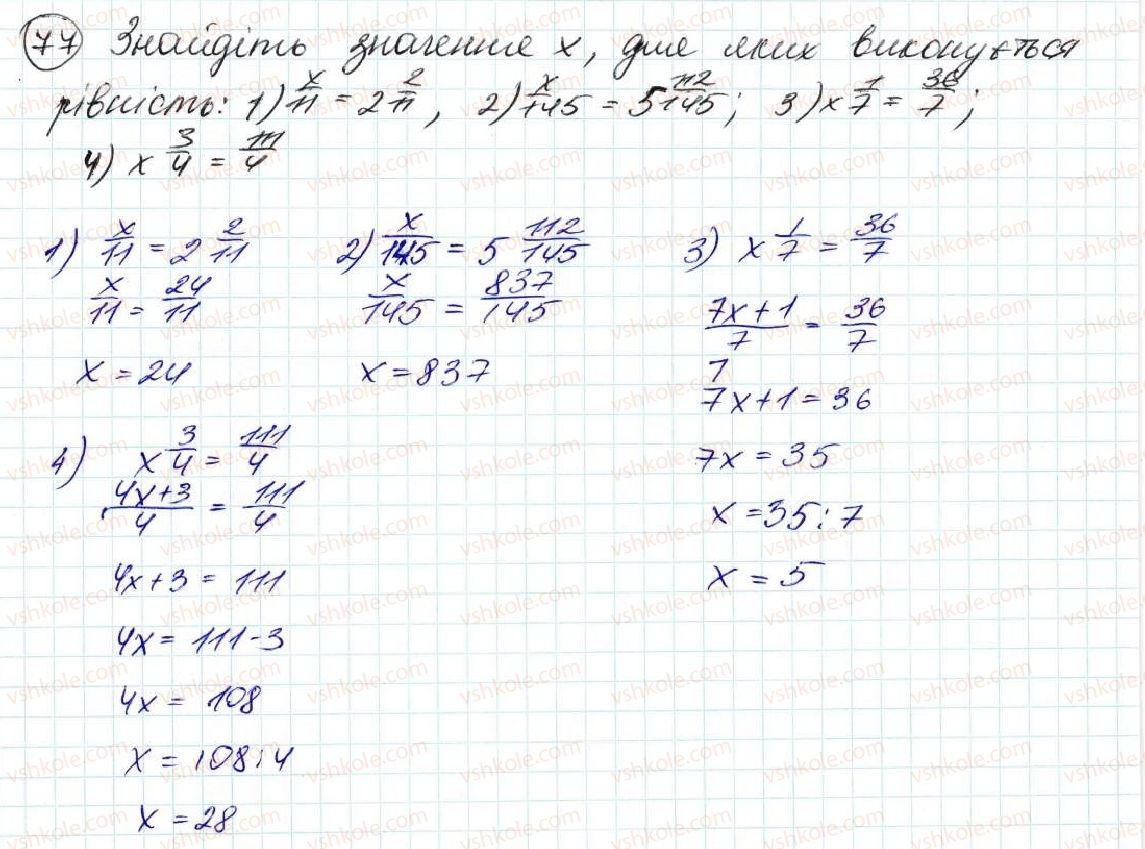 77 Знайдіть значення x, для яких виконується
рівність: 1) x/11 = 2 2/11, 2) x/145 = 5 112/145; 3) x 1/7 = 36/7;
4) x 3/4 = 111/4
1) x/11 = 2 2/11
x/11 = 24/11
x = 24
2) x/145 = 5 112/145
x/145 = 837/145
x = 837
3) x 1/7 = 36/7
7x+1/7 = 36/7
7x+1 = 36
7x = 35
x = 35:7
x = 5
4) x 3/4 = 111/4
4x+3/4 = 111/4
4x+3 = 111
4x = 111-3
4x = 108
x = 108:4
x = 28